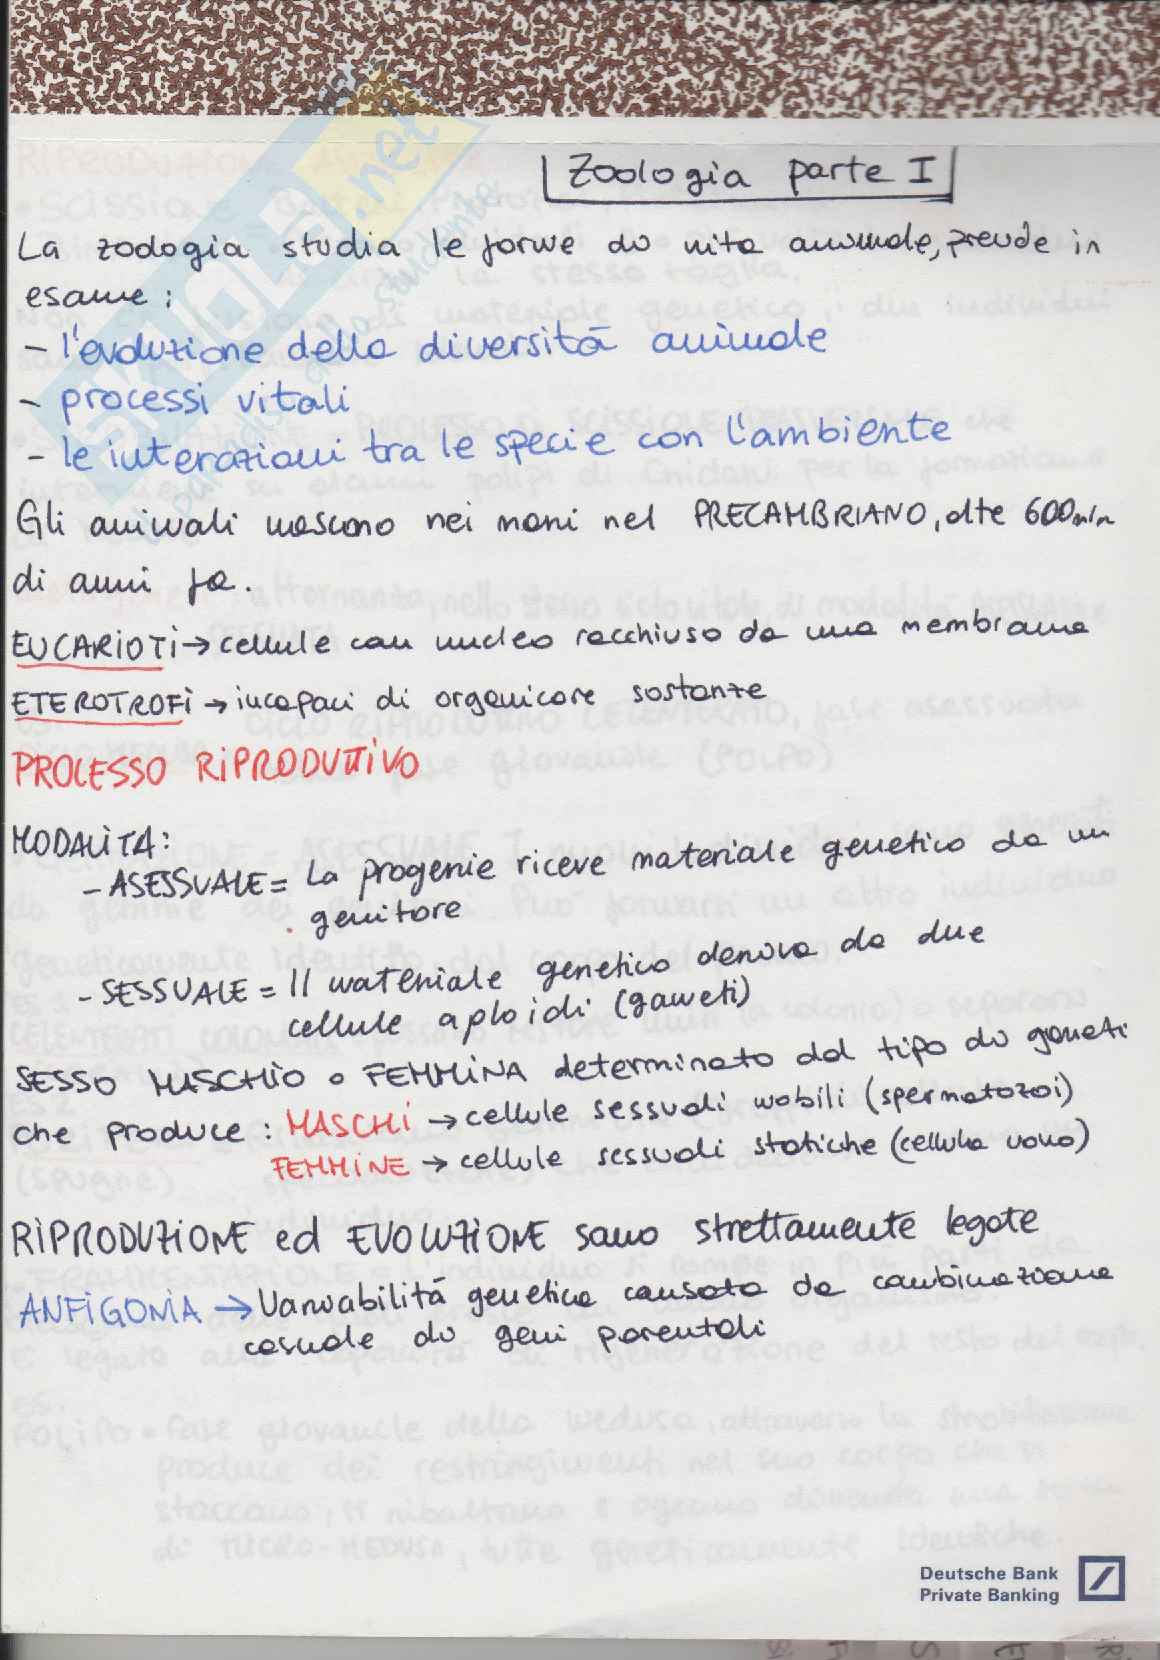 Zoologia parte I
La zoologia studia le forme di vita animale, prende in
esame:
- l'evoluzione della diversità animale
- processi vitali
- le interazioni tra le specie con l'ambiente
Gli animali nascono nei mari nel PRECAMBRIANO, oltre 600 mln
di anni fa.
EUCARIOTI → cellule con nucleo racchiuso da una membrana
ETEROTROFI → incapaci di organicare sostanze
PROCESSO RIPRODUTTIVO
MODALITA:
- ASESSUALE = La progenie riceve materiale genetico da un
genitore
- SESSUALE = Il materiale genetico deriva da due
cellule aploidi (gameti)
SESSO MASCHIO o FEMMINA determinato dal tipo di gameti
che produce: MASCHI → cellule sessuali mobili (spermatozoi)
FEMMINE → cellule sessuali statiche (cellula uovo)
RIPRODUZIONE ed EVOLUZIONE sono strettamente legate
ANFIGONIA → Variabilità genetica causata da combinazione
casuale di geni parentali
Deutsche Bank
Private Banking